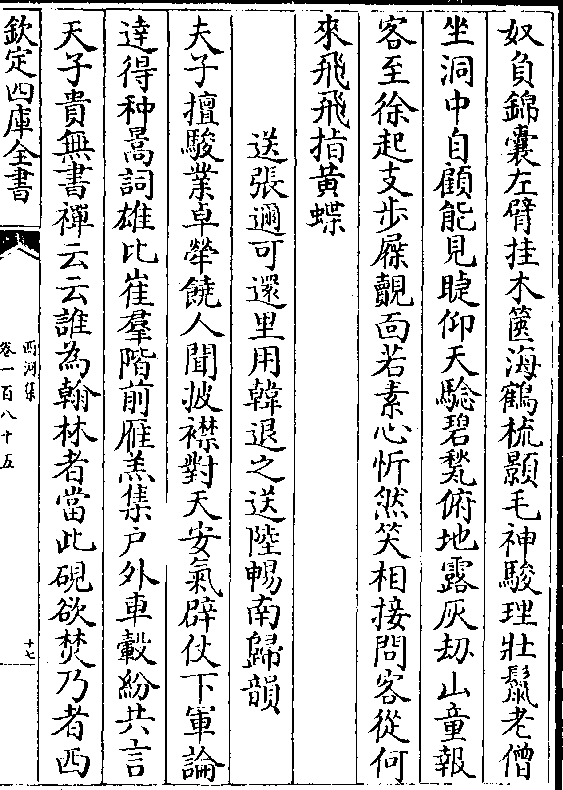 奴負錦囊左臂挂木篋海鶴梳顥毛神駿理壯鬛老僧
坐洞中自顧能見睫仰天驗碧甃俯地露灰刼山童報
客至徐起支步屧覿面若素心忻然笑相接問客從何
來飛飛指黃蝶
送張邇可還里用韓退之送陸暢南歸韻
夫子擅駿業卓犖饒人聞披襟對天安氣辟仗下軍論
達得种暠詞雄比崔羣階前雁羔集户外車轂紛共言
天子貴無書禪云云誰為翰林者當此硯欲焚乃者西
欽定四庫全書
西河集
卷一百八十五
十七